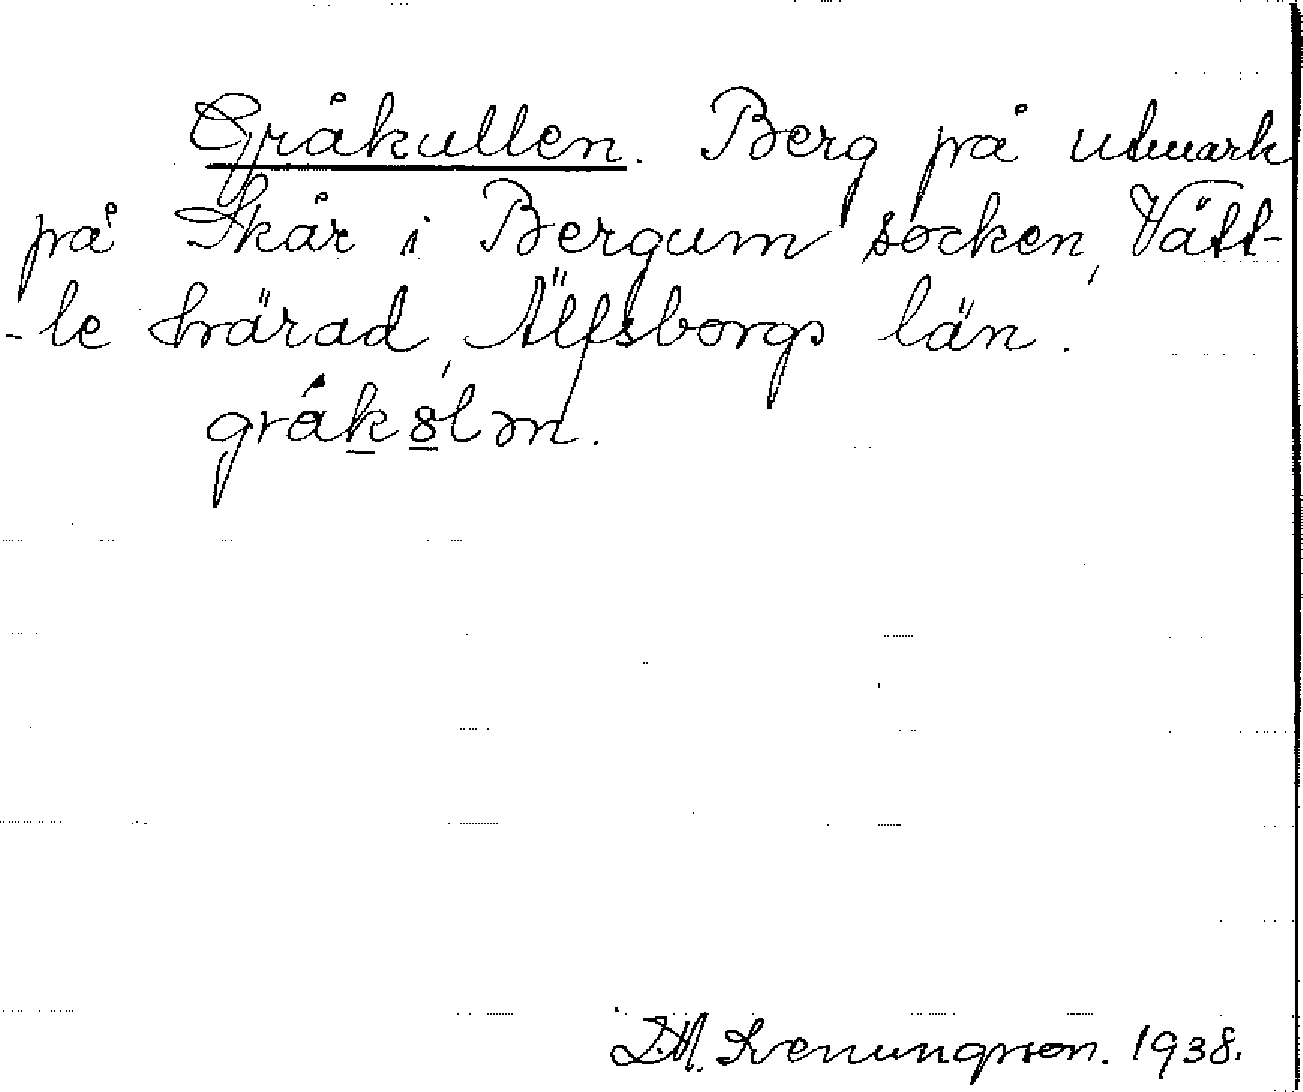 Gråkullen. Berg på utmark
på Skår i Bergum socken, Vätt-
-le härad, Älfsborgs län.
gråk8lən.
D.A. Svenungsson. 1938.